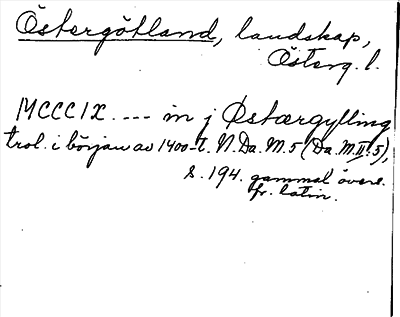 Östergötland, landskap,
Österg. l.
MCCCIX. --- in j Østærgylling
trol. i början av 1400-t. N.Da.M.5 (Da.M.II.5),
s. 194. gammal övers.
fr. latin.